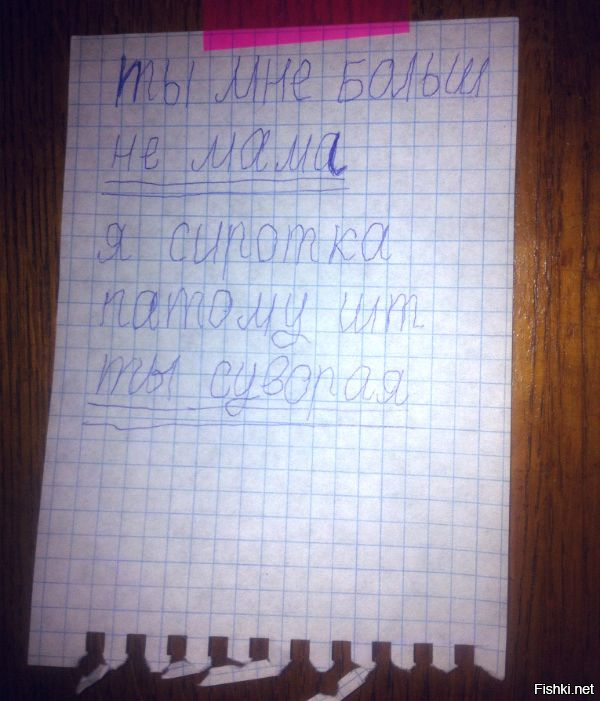 ты мне больш
не мама
я сиротка
патому шт
ты суворая
Fishki.net